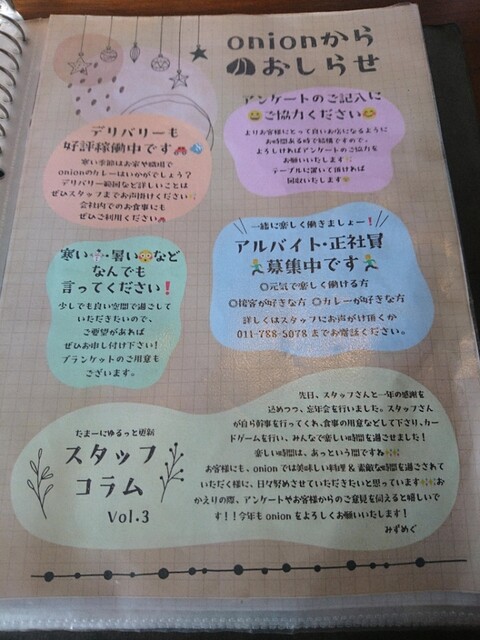 onionから
おしらせ
アンケートのご記入に
ご協力ください
よりお客様にとって良いお店になるように
お時間ある時で結構ですので、
よろしければアンケートのご協力を
お願いいたします
テーブルに置いて頂ければ
回収いたします
デリバリーも
好評稼働中です
寒い季節はお家や職場で
onionのカレーはいかがでしょう?
デリバリー範囲など詳しいことは
ぜひスタッフまでお声掛けください
会社内でのお食事にも
ぜひご利用ください
一緒に楽しく働きましょー!
アルバイト・正社員
募集中です
◎元気で楽しく働ける方
◎接客が好きな方 ◎カレーが好きな方
詳しくはスタッフにお声がけ頂くか
011-788-5078までお電話ください。
寒い・暑いなど
なんでも
言ってください!
少しでも良い空間で過ごして
いただきたいので、
ご要望があれば
ぜひお申し付け下さい!
ブランケットのご用意も
ございます。
たまーにゆるっと更新
スタッフ
コラム
Vol.3
先日、スタッフさんと一年の感謝を
込めつつ、忘年会を行いました。スタッフさん
が自ら幹事を行ってくれ、食事の用意などして下さり、カー
ドゲームを行い、みんなで楽しい時間を過ごせました!
楽しい時間は、あっという間ですね
お客様にも、onionでは美味しい料理&素敵な時間を過ごされて
いただく様に、日々努めさせていただきたいと思っています お
かえりの際、アンケートやお客様からのご意見を伺えると嬉しいで
す!!今年もonionをよろしくお願いいたします!
みずめぐ